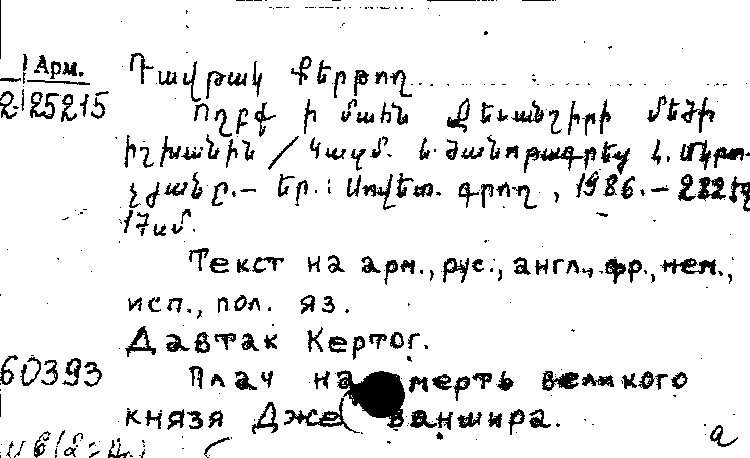 Арм.
2 25215
Դավթակ Քերթող
Ողբք ի մահն Ջեւանշիրի մեծի
իշխանին / Կազմ. և ծանոթագրեց Լ. Մկրտ-
չյանը.– Եր.: Սովետ. գրող, 1986.– 282 էջ
17 սմ.
Текст на арм., рус., англ., фр., нем.,
исп., пол. яз.
Давтак Кертог.
60393
Плач на смерть великого
князя Джеваншира.
а